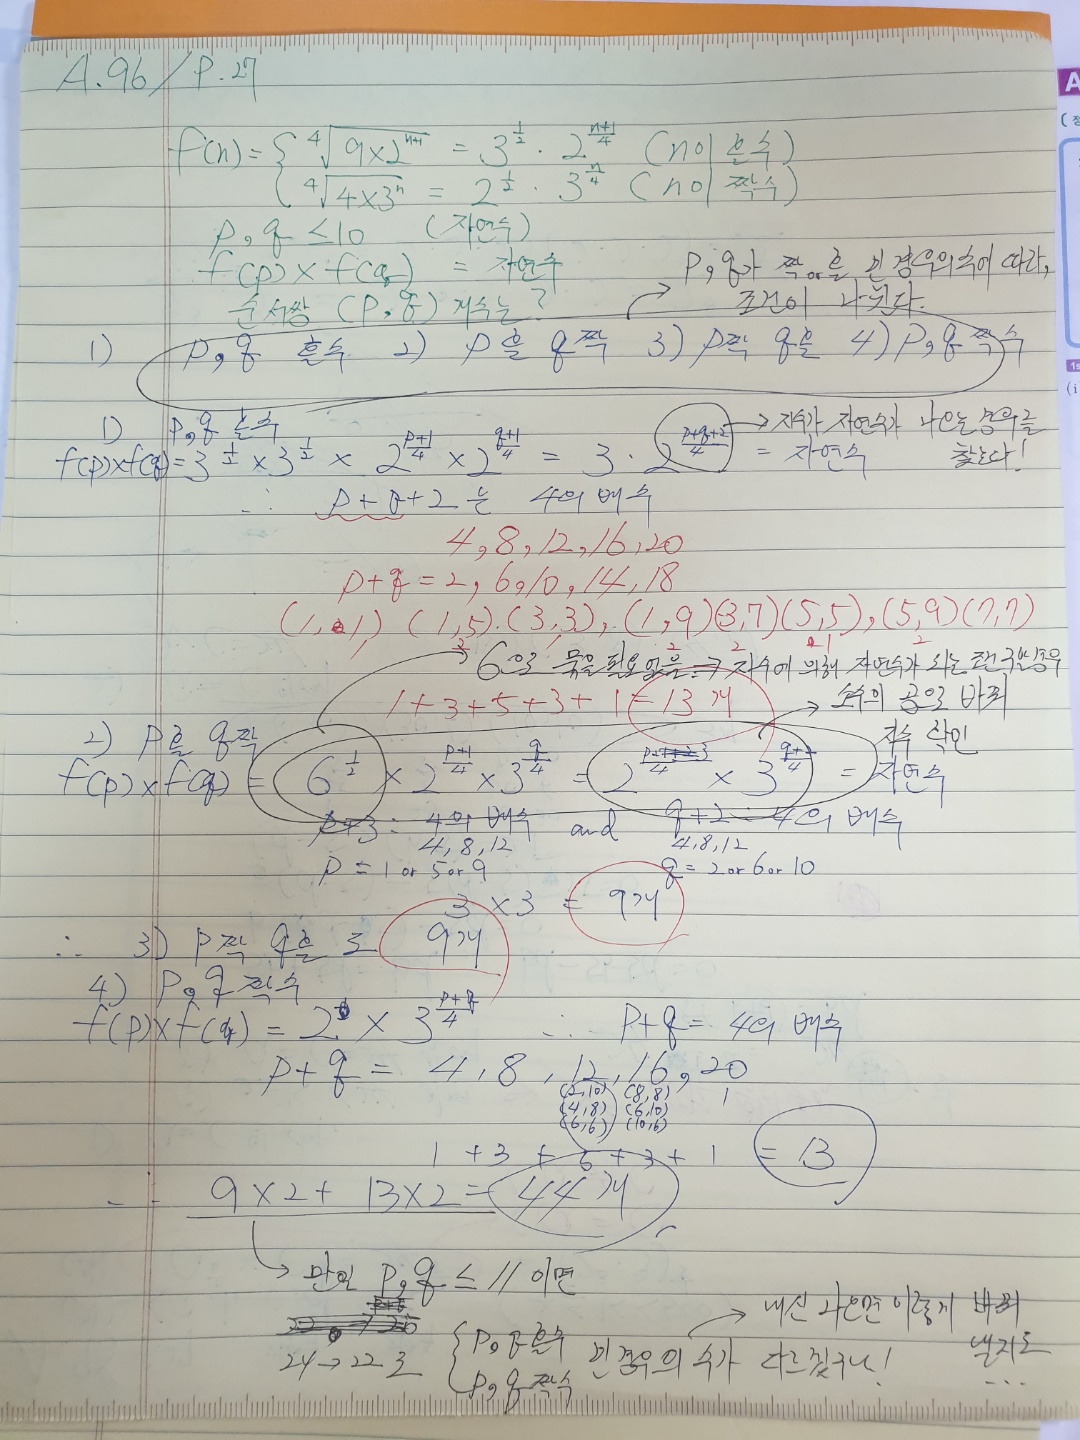 A.96 / P.27
f(n) = { ⁴√(9×2ⁿ⁺¹) = 3^(1/2) · 2^((n+1)/4) (n이 홀수)
⁴√(4×3ⁿ) = 2^(1/2) · 3^(n/4) (n이 짝수)
p, q ≤ 10 (자연수)
f(p) × f(q) = 자연수
순서쌍 (p, q) 개수는?
p, q가 짝 or 홀 인 경우의 수에 따라,
조건이 나뉜다.
1) p, q 홀수 2) p홀 q짝 3) p짝 q홀 4) p, q짝수
1) p, q 홀수
f(p)×f(q) = 3^(1/2) × 3^(1/2) × 2^((p+1)/4) × 2^((q+1)/4) = 3 · 2^((p+q+2)/4) = 자연수
→ 지수가 자연수가 나오는 경우를
찾는다!
∴ p+q+2 는 4의 배수
4, 8, 12, 16, 20
p+q = 2, 6, 10, 14, 18
(1, 1) (1,5)·(3,3), (1,9)(3,7)(5,5), (5,9)(7,7)
6으로 묶을 필요 없음 → 지수에 의해 자연수가 되는
1+3+5+3+1 = 13개
→ 소수의 곱으로 바꿔
지수 확인
2) p홀 q짝
f(p)×f(q) = 6^(1/2) × 2^((p+1)/4) × 3^(q/4) = 2^((p+3)/4) × 3^((q+2)/4) = 자연수
p+3 : 4의 배수 and q+2 : 4의 배수
4, 8, 12 4, 8, 12
p = 1 or 5 or 9 q = 2 or 6 or 10
3 × 3 = 9개
∴ 3) p짝 q홀 도 9개
4) p, q 짝수
f(p)×f(q) = 2 × 3^((p+q)/4) ∴ p+q = 4의 배수
p+q = 4, 8, 12, 16, 20
(2,10) (8,8) 1
(4,8) (6,10)
(6,6) (10,6)
1 + 3 + 5 + 3 + 1 = 13
∴ 9×2 + 13×2 = 44개
→ 만일 p, q ≤ 11 이면
24 → 22 로 { p, q 홀수
p, q 짝수 인 경우의 수가 다르겠구나!
→ 내신 나오면 이렇게 바꿔
낼지도
...